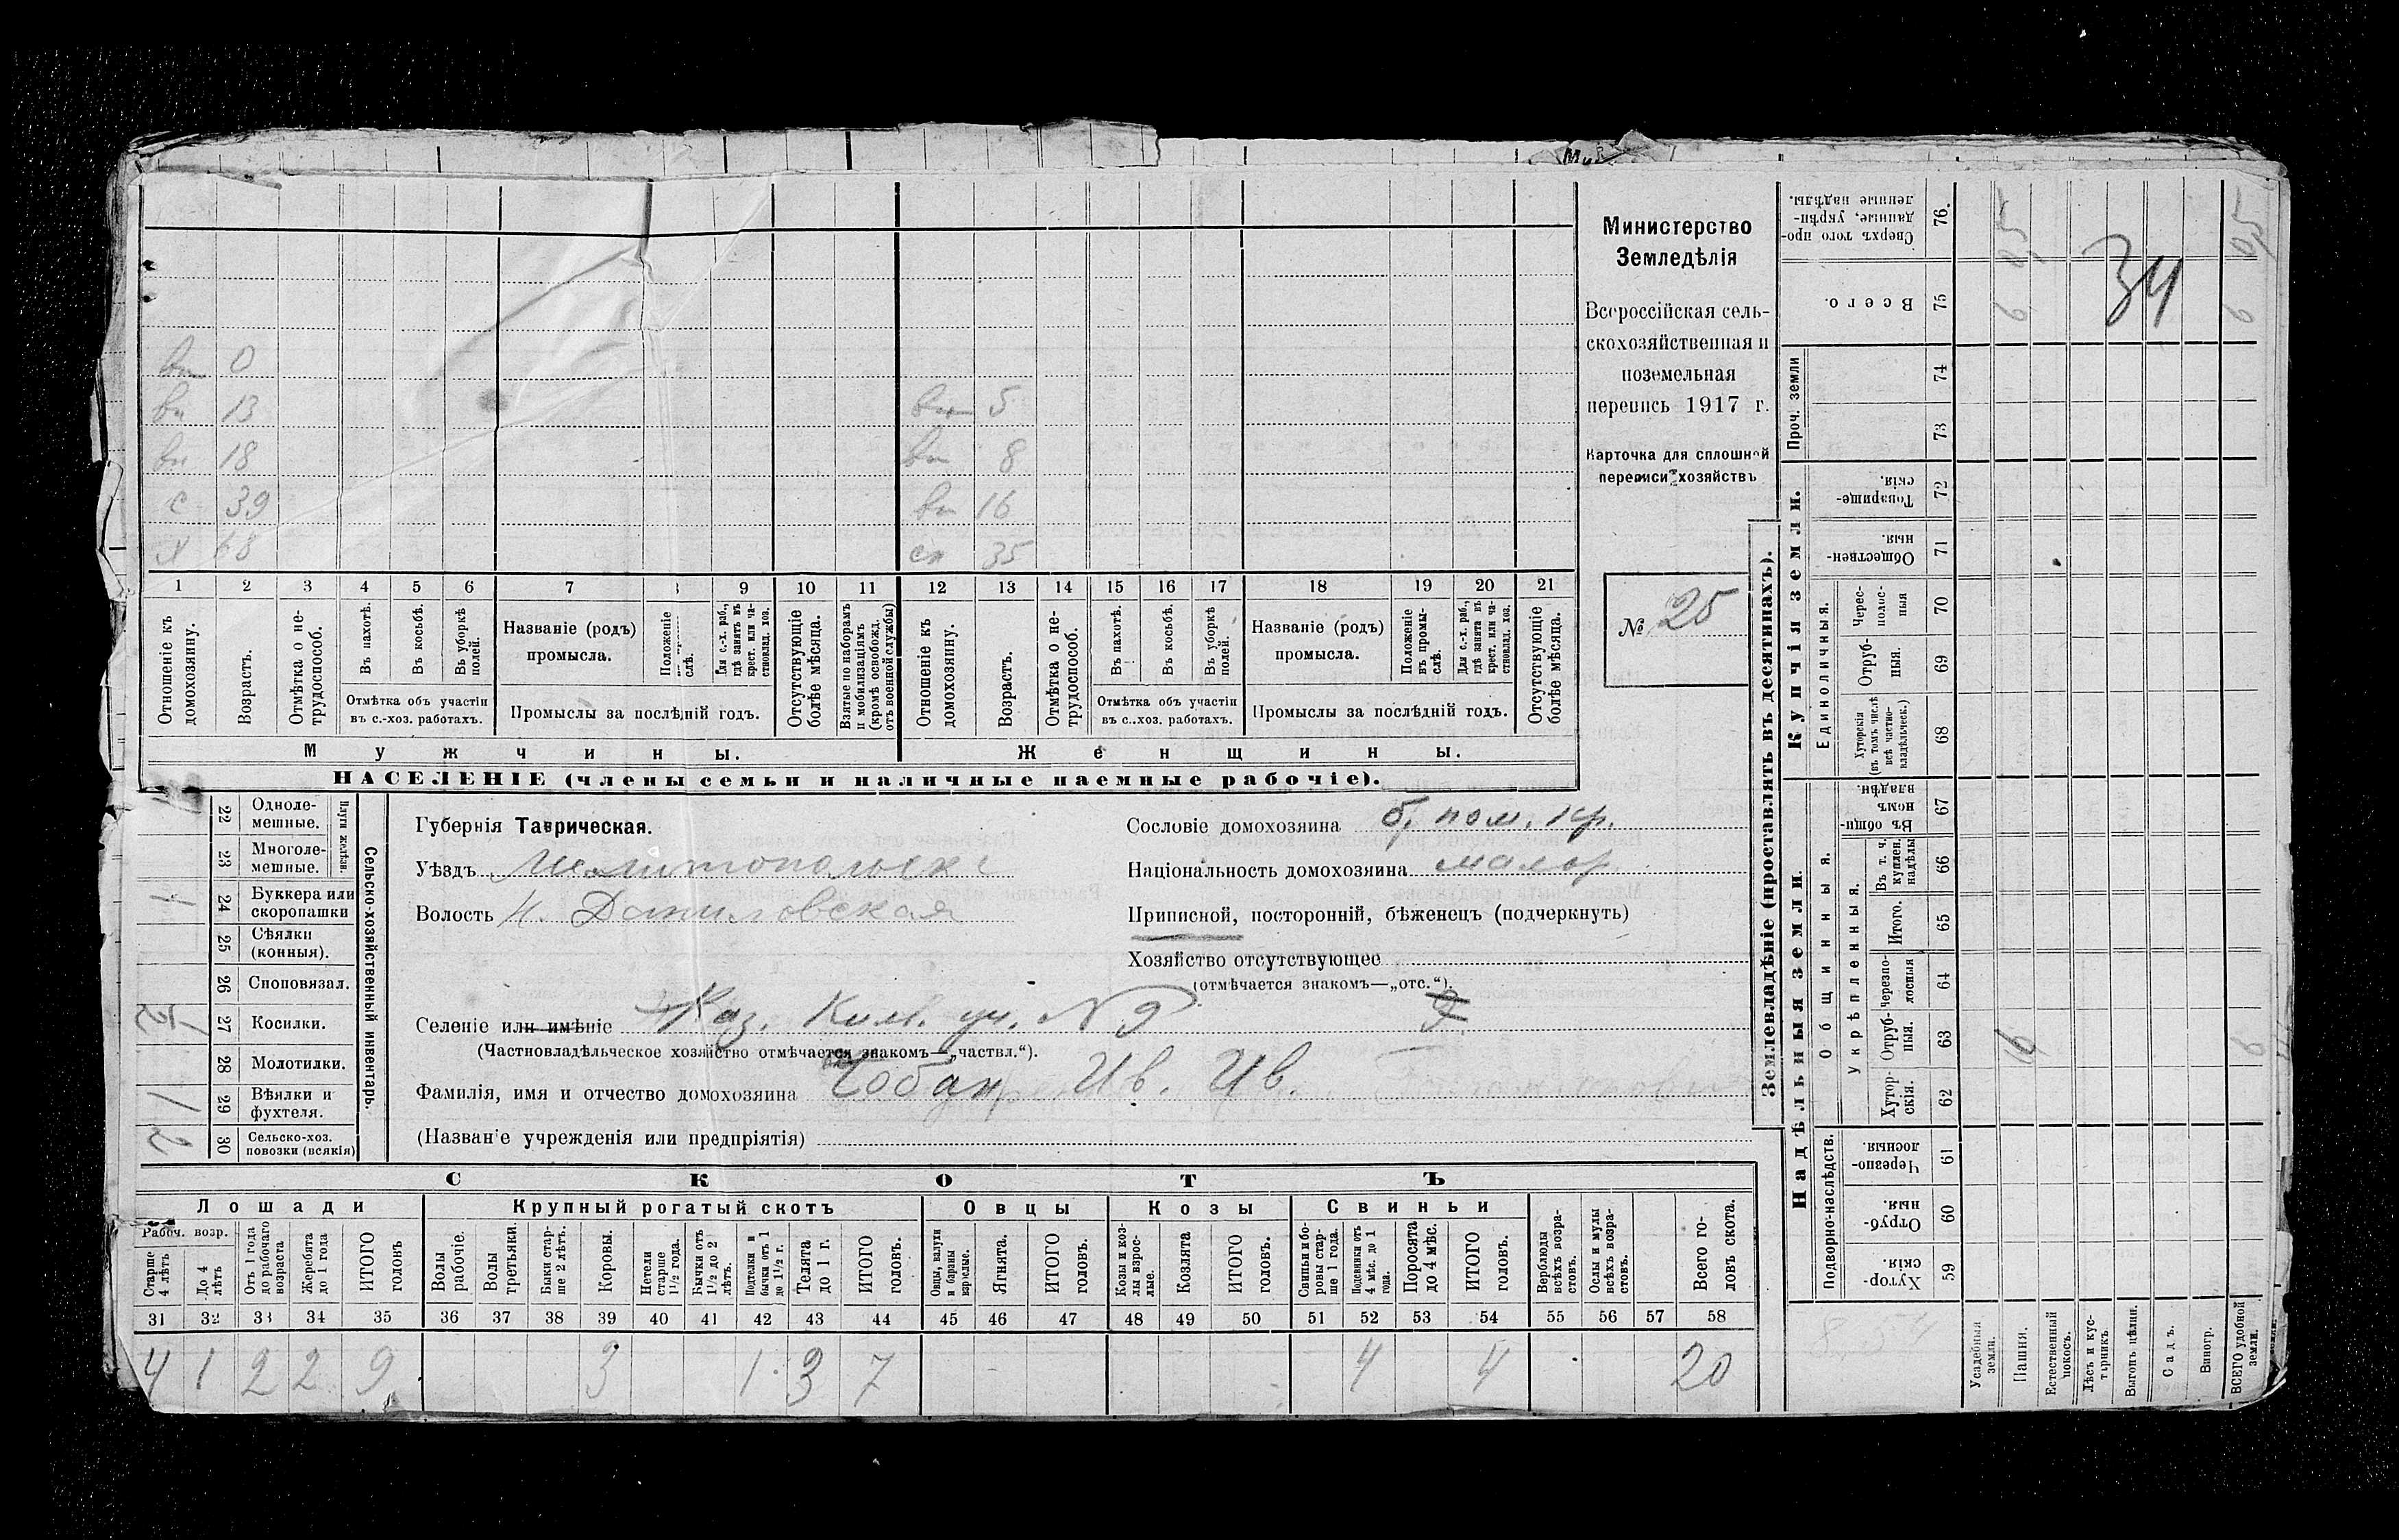 вн 0
вн 13 вн 5
вн 18 вн 8
с 39 вн 16
х 68 сн 35
1 2 3 4 5 6 7 9 10 11 12 13 14 15 16 17 18 19 20 21
Отношеніе къ домохозяину.
Возрастъ.
Отмѣтка о не-трудоспособ.
Въ пахотѣ.
Въ косьбѣ.
Въ уборкѣ полей.
Отмѣтка объ участіи
въ с.-хоз. работахъ.
Названіе (родъ)
промысла.
Положеніе
слѣ.
Для с.-х. раб., гдѣ занятъ въ крест. или ча-ствовлад. хоз.
Промыслы за послѣдній годъ.
Отсутствующіе болѣе мѣсяца.
Взятые по наборамъ и мобилизаціямъ (кромѣ освобожд. отъ военной службы)
Отношеніе къ домохозяину.
Возрастъ.
Отмѣтка о не-трудоспособ.
Въ пахотѣ.
Въ косьбѣ.
Въ уборкѣ полей.
Отмѣтка объ участіи
въ с.-хоз. работахъ.
Названіе (родъ)
промысла.
Положеніе въ промы-слѣ.
Для с.-х. раб., гдѣ занята въ крест. или ча-ствовлад. хоз.
Промыслы за послѣдній годъ.
Отсутствующіе болѣе мѣсяца.
Мужчины. Женщины.
НАСЕЛЕНІЕ (члены семьи и наличные наемные рабочіе).
Министерство
Земледѣлія
Всероссійская сель-
скохозяйственная и
поземельная
перепись 1917 г.
Карточка для сплошной
переписи хозяйствъ
№ 25
22 Одноле-мешные.
23 Многоле-мешные.
Плуги желѣзн.
1 24 Буккера или скоропашки
25 Сѣялки (конныя).
26 Споповязал.
27 Косилки.
28 Молотилки.
1 29 Вѣялки и фухтеля.
2 30 Сельско-хоз. повозки (всякія)
Сельско-хозяйственный инвентарь.
Губернія Таврическая.
Уѣздъ Мелитопольск
Волость Н. Даниловская
Сословіе домохозяина б. пом. кр.
Національность домохозяина малор.
Приписной, посторонній, бѣженецъ (подчеркнуть)
Хозяйство отсутствующее
(отмѣчается знакомъ—„отс.“).
Селеніе или имѣніе Каз. Кил. уч. N 9
(Частновладѣльческое хозяйство отмѣчается знакомъ—„частвл.“).
Фамилія, имя и отчество домохозяина Чобан Ив. Ив.
(Названіе учрежденія или предпріятія)
СКОТЪ
Лошади Крупный рогатый скотъ Овцы Козы Свиньи
Рабоч. возр.
Старше 4 лѣтъ
До 4 лѣтъ
Отъ 1 года до рабочаго возраста
Жеребята до 1 года
ИТОГО головъ
Волы рабочіе.
Волы третьяки.
Быки стар-ше 2 лѣтъ.
Коровы.
Нетели старше 1½ года.
Бычки отъ 1½ до 2 лѣтъ.
Подтелки и бычки отъ 1 до 1½ г.
Телята до 1 г.
ИТОГО головъ.
Овцы, валухи и бараны взрослые.
Ягнята.
ИТОГО головъ.
Козы и коз-лы взрос-лые.
Козлята
ИТОГО головъ.
Свиньи и бо-ровы стар-ше 1 года.
Подсвинки отъ 4 мѣс. до 1 года.
Поросята до 4 мѣс.
ИТОГО головъ.
Верблюды всѣхъ возра-стовъ.
Ослы и мулы всѣхъ возра-стовъ.
Всего го-ловъ скота.
31 32 33 34 35 36 37 38 39 40 41 42 43 44 45 46 47 48 49 50 51 52 53 54 55 56 57 58
4 1 2 2 9 3 1 3 7 4 4 20
Землевладѣніе (проставлять въ десятинахъ).
Купчія земли.
Надѣльныя земли.
Сверхъ того про-данные, укрѣп-ленные надѣлы. 76.
Всего. 75
Проч. земли 74 73
Товарище-скія. 72
Обществен-ныя. 71
Единоличныя.
Черес-полос-ныя 70
Отруб-ныя. 69
Хуторскія (въ томъ числѣ всѣ частно-владѣльческ.) 68
Общинныя.
Въ общин-номъ владѣн. 67
Укрѣпленныя.
Въ т. ч. куплен. надѣлы 66
Итого. 65
Черезпо-лосныя 64
Отруб-ныя. 63
Хутор-скія. 62
Подворно-наслѣдств.
Черезпо-лосныя 61
Отруб-ныя. 60
Хутор-скія. 59
34
9
9
9
Усадебныя земли.
Пашня.
Естественный покосъ.
Лѣсъ и кус-тарникъ
Выгонъ цѣлин.
Садъ.
Виногр.
ВСЕГО удобной земли.